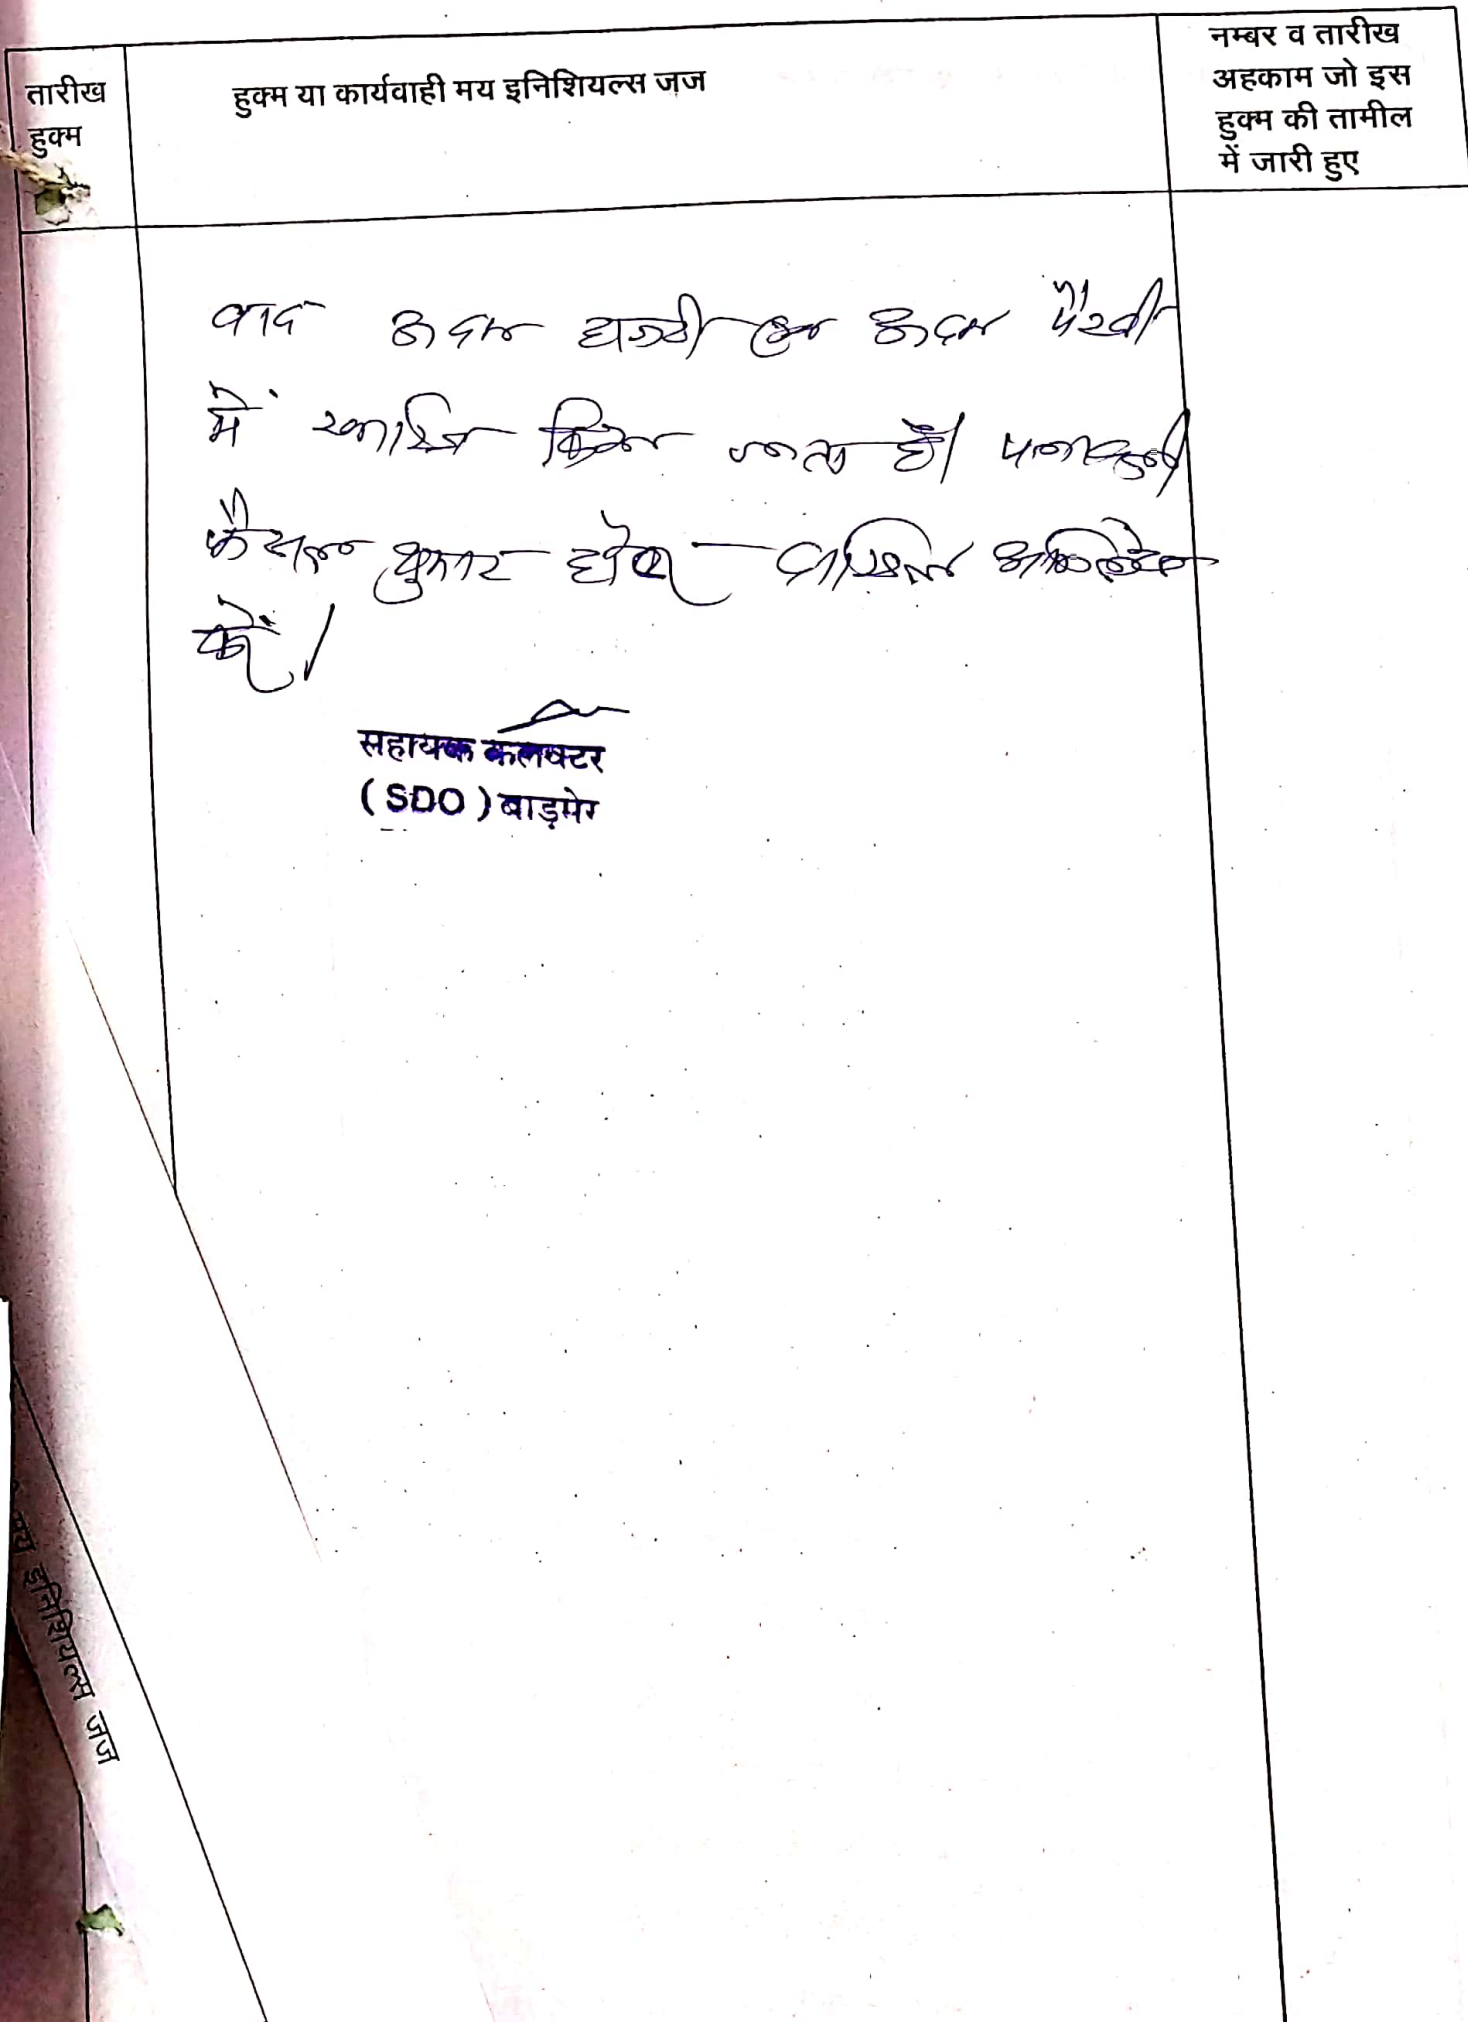 तारीख
हुक्म
हुक्म या कार्यवाही मय इनिशियल्स जज
नम्बर व तारीख
अहकाम जो इस
हुक्म की तामील
में जारी हुए
वाद अदम हाजरी एवं अदम पैरवी
में खारिज किया जाता है। पत्रावली
फैसल शुमार होकर दाखिल अभिलेख
करें।
सहायक कलक्टर
(SDO) बाड़मेर
मय इनिशियल्स जज